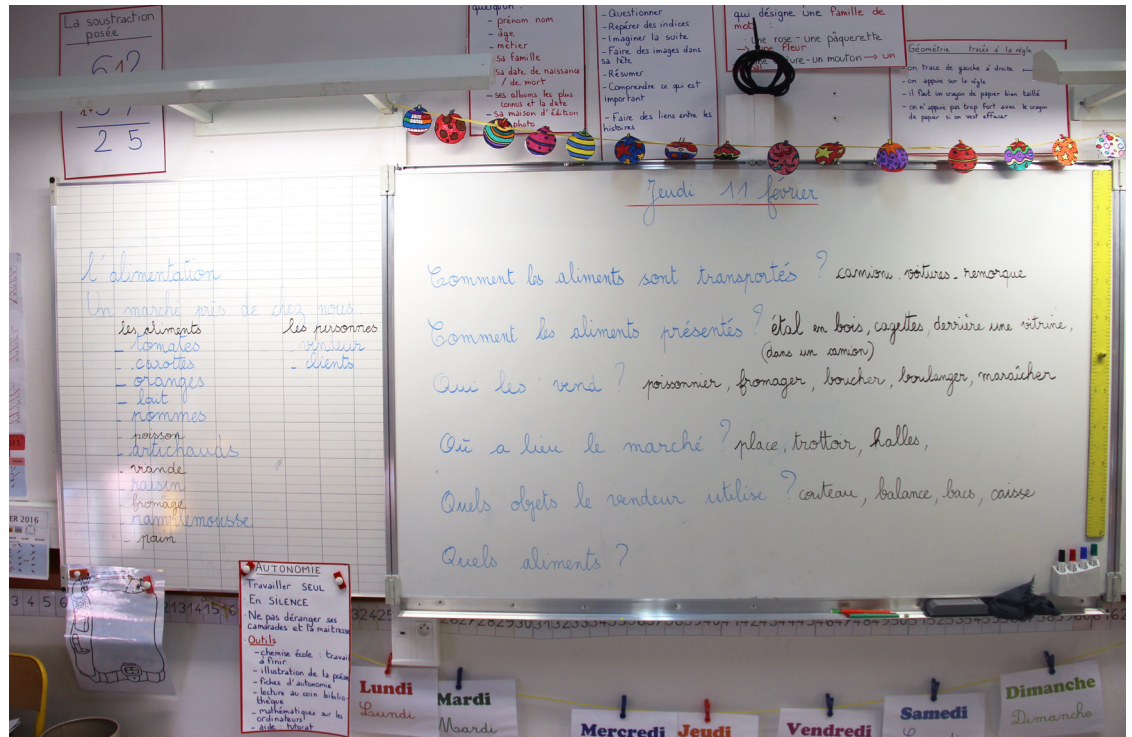 La soustraction
posée
612
2 5
quelqu'un :
- prénom nom
- âge
- métier
- sa famille
- sa date de naissance
/ de mort
- ses albums les plus
connus et la date
- sa maison d'édition
photo
- Questionner
- Repérer des indices
- Imaginer la suite
- Faire des images dans
sa tête
- Résumer
- Comprendre ce qui est
important
- Faire des liens entre les
histoires
qui désigne une famille de
mots
une rose - une pâquerette
→ une fleur
- un mouton → un
Géométrie : tracés à la règle
- on trace de gauche à droite
- on appuie sur la règle
- il faut un crayon de papier bien taillé
- on n'appuie pas trop fort avec le crayon
de papier si on veut effacer
l'alimentation
Un marché près de chez nous
les aliments
- tomates
- carottes
- oranges
- lait
- pommes
- poisson
- artichauds
- viande
- raisin
- fromage
- pamplemousse
- pain
les personnes
- vendeur
- clients
Jeudi 11 février
Comment les aliments sont transportés ? camions. voitures - remorque
Comment les aliments présentés ? étal en bois, cagettes, derrière une vitrine,
(dans un camion)
Qui les vend ? poissonnier, fromager, boucher, boulanger, maraîcher
Où a lieu le marché ? place, trottoir, halles,
Quels objets le vendeur utilise ? couteau, balance, bacs, caisse
Quels aliments ?
ER 2016
AUTONOMIE
Travailler SEUL
En SILENCE
Ne pas déranger ses
camarades et la maitresse
Outils
- chemise école : travail
à finir
- illustration de la poésie
- fiches d'autonomie
- lecture au coin biblio-
thèque
- mathématiques sur les
ordinateurs
- aide tutorat
3 4 5 6
Lundi
Lundi
Mardi
Mardi
Mercredi
Jeudi
Vendredi
Samedi
Dimanche
Dimanche